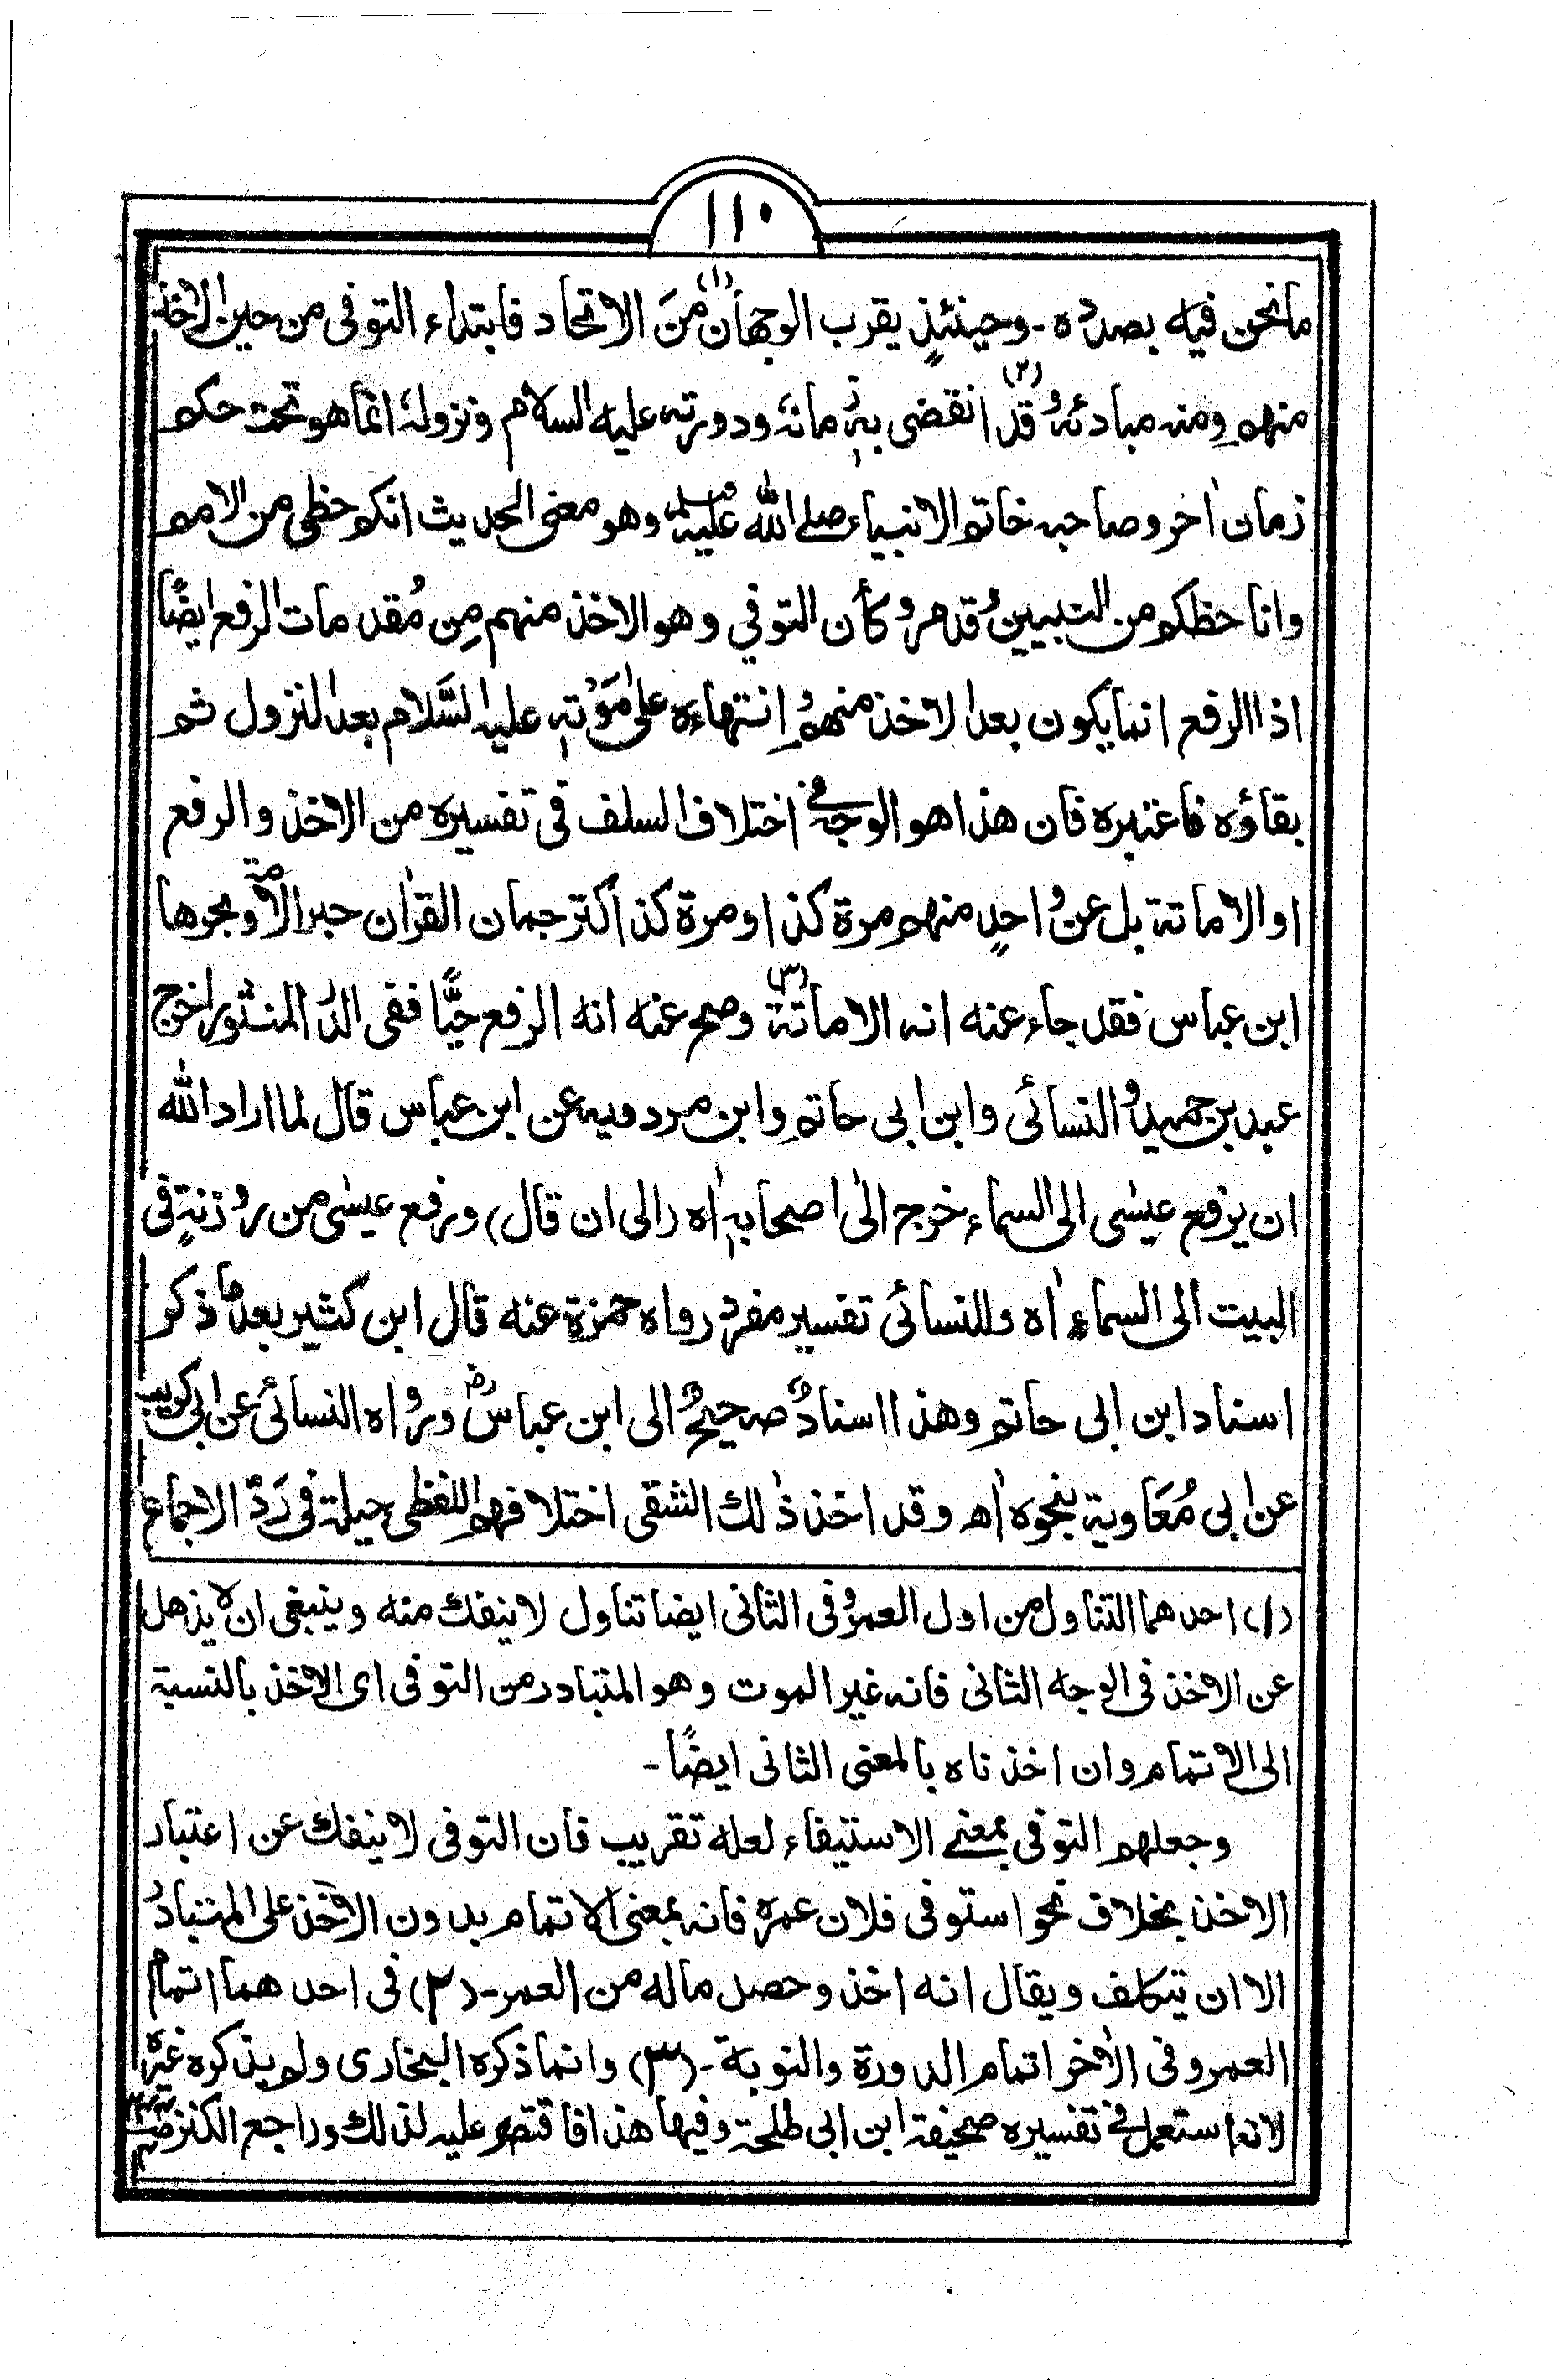 ١١٠
ما نحن فيه بصدده ـ وحينئذٍ يقرب الوجهان(١) منَ الاتحاد فابتداء التوفى من حين الاخذ
منهم ومنه مبادئه وقد(٢) انقضى بهٖ زمانهٗ ودورته عليه السلام ونزولهٗ انما هو تحت حكم
زمان اٰخر وصاحبه خاتم الانبياء صلے الله عليه وسلم وهو معنى الحديث انكم حظى من الامم
وانا حظكم من النبيين وقد مر وكأن التوفي وهو الاخذ منهم مِن مُقدمات الرفع ايضًا
اذا الرفع انما يكون بعد الاخذ منهم وانتهاءه علىٰ مَوْتهٖ عليه السَّلام بعد النزول ثم
بقاؤه فاعتبره فان هذا هو الوجه فى اختلاف السلف فى تفسيره من الاخذ والرفع
او الاماتة بل عن واحدٍ منهم مرة كذا ومرة كذا كترجمان القراٰن حبر الامة وبحرها
ابن عباس فقد جاء عنه انه الاماتة(٣) وصح عنه انه الرفع حيًّا ففى الدُر المنثور اخرج
عبد بن حميد والنسائى وابن ابى حاتم وابن مردويه عن ابن عباس قال لما اراد الله
ان يرفع عيسٰى الى السماء خرج الىٰ اصحابهٖ اٰه (الى ان قال) ورفع عيسٰى من روزنةٍ فى
البيت الى السماء اٰه وللنسائى تفسير مفرد رواه حمزة عنه قال ابن كثير بعد ما ذكر
اسناد ابن ابى حاتم وهذا اسنادٌ صحيحٌ الى ابن عباسؓ ورواه النسائى عن ابى كريب
عن ابى مُعَاوية بنحوه اٰه وقد اخذ ذٰلك الشقى اختلافهم اللفظى حيلة فى رَدّ الاجماع
(١) احدهما التناول من اول العمر وفى الثانى ايضا تناول لا ينفك منه وينبغى ان لا يذهل
عن الاخذ فى الوجه الثانى فانه غير الموت وهو المتبادر من التوفى اى الاخذ بالنسبة
الى الاتمام وان اخذناه بالمعنى الثانى ايضًا ـ
وجعلهم التوفى بمعنے الاستيفاء لعله تقريب فان التوفى لا ينفك عن اعتبار
الاخذ بخلاف نحو استوفى فلان عمره فانه بمعنى الاتمام بدون الاخذ على المتبادر
الا ان يتكلف ويقال انه اخذ وحصل ماله من العمر ـ (٢) فى احدهما اتمام
العمر وفى الاٰخر اتمام الدورة والنوبة ـ (٣) وانما ذكره البخارى ولم يذكره غيره
لانه استعمل فى تفسيره صحيفة ابن ابى طلحة وفيها هذا فاقتصر عليه لذلك وراجع الكنز